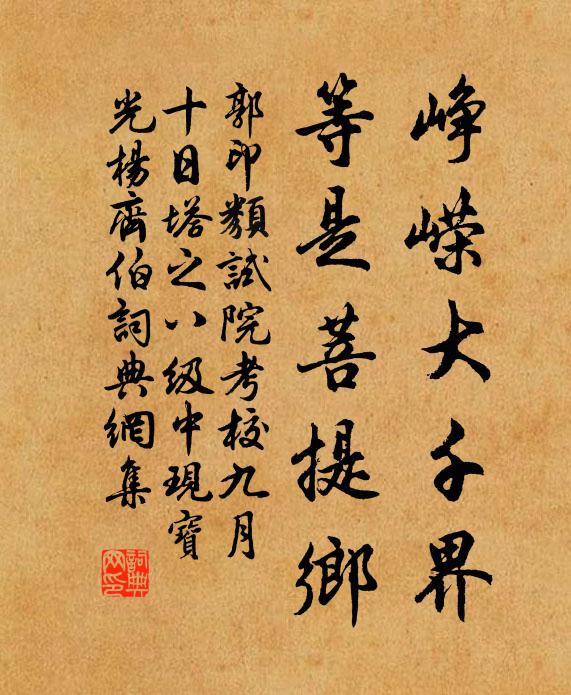 峥嶸大千界
等是菩提鄉
郭印類試院考校九月
十日塔之八級中現寶
光楊齊伯詞典網集
詞典
网印